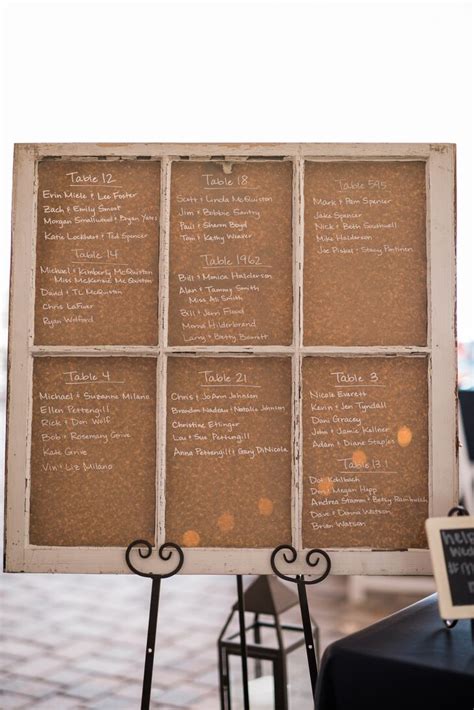 Table 12
Erin Miele & Lee Foster
Zach & Emily Smoot
Morgan Smallwood & Bryan Yates
Katie Lockhart & Ted Spencer
Table 14
Michael & Kimberly McQuiston
Miss McKenzie McQuiston
David & TL McQuiston
Chris LaFuer
Ryan Wolford
Table 18
Scott & Linda McQuiston
Jim & Bobbie Santry
Paul & Sharon Boyd
Tom & Kathy Weaver
Table 1962
Bill & Monica Halderson
Alan & Tammy Smith
Miss Ali Smith
Bill & Jeni Flood
Mama Hilderbrand
Larry & Betty Barnett
Table 595
Mark & Pam Spencer
Jake Spencer
Nick & Beth Southwell
Mike Halderson
Joe Piskel & Stacey Pantinen
Table 4
Michael & Suzanne Milano
Ellen Pettengill
Rick & Don Wolf
Bob & Rosemary Grove
Kati Grove
Vin & Liz Milano
Table 21
Chris & JoAnn Johnson
Brandon Nadeau & Natalie Johnson
Christine Ettinger
Lou & Sue Pettengill
Anna Pettengill & Gary DiNicola
Table 3
Nicole Everett
Kevin & Jen Tyndall
Dani Gracey
John & Jamie Kellner
Adam & Diane Stapler
Table 13.1
Dot Kohlbach
Jim & Megan Hupp
Andrea Stamm & Betsy Rambulsch
Dave & Donna Watson
Brian Watson
help